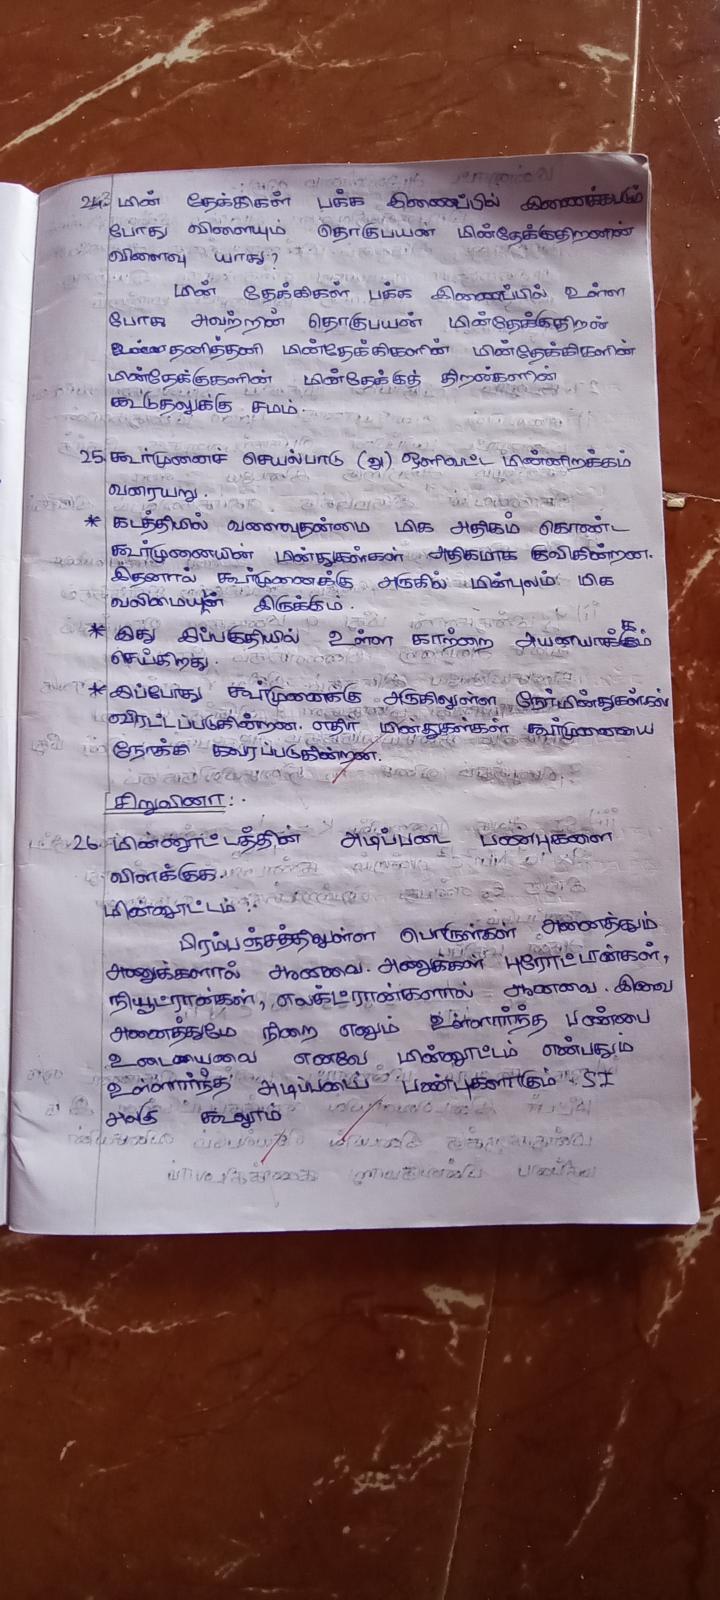 24. மின் தேக்கிகள் பக்க இணைப்பில் இணைக்கபடும்
போது விளையும் தொகுபயன் மின்தேக்குதிறனின்
விளைவு யாது?
மின் தேக்கிகள் பக்க இணைப்பில் உள்ள
போது அவற்றின் தொகுபயன் மின்தேக்குதிறன்
தனித்தனி மின்தேக்கிகளின் மின்தேக்கிகளின்
மின்தேக்குகளின் மின்தேக்குத் திறன்களின்
கூடுதலுக்கு சமம்.
25. கூர்முனைச் செயல்பாடு (அ) ஒளிவட்ட மின்னிறக்கம்
வரையறு.
* கடத்தியில் வளைவுதன்மை மிக அதிகம் கொண்ட
கூர்முனையின் மின்துகள்கள் அதிகமாக குவிகின்றன.
இதனால் கூர்முனைக்கு அருகில் மின்புலம் மிக
வலிமையுன் இருக்கும்.
* இது இப்பகுதியில் உள்ள காற்றை அயனியாக்கம்
செய்கிறது.
* இப்போது கூர்முனைக்கு அருகிலுள்ள நேர்மின்துகள்கள்
விரட்டப்படுகின்றன. எதிர் மின்துகள்கள் கூர்முனையை
நோக்கி கவரப்படுகின்றன.
சிறுவினா:
26. மின்னூட்டத்தின் அடிப்படை பண்புகளை
விளக்குக.
மின்னூட்டம்:
பிரம்பஞ்சத்திலுள்ள பொருள்கள் அனைத்தும்
அணுக்களால் ஆனவை. அணுக்கள் புரோட்டான்கள்,
நியூட்ரான்கள், எலக்ட்ரான்களால் ஆனவை. இவை
அனைத்துமே நிறை எனும் உள்ளார்ந்த பண்பை
உடையவை எனவே மின்னூட்டம் என்பதும்
உள்ளார்ந்த அடிப்படை பண்புகளாகும் SI
அலகு கூலூம்